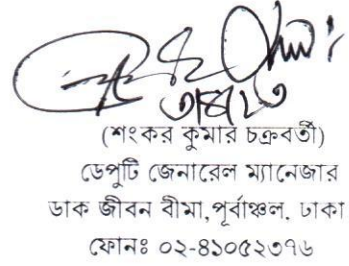 (শংকর কুমার চক্রবর্তী)
ডেপুটি জেনারেল ম্যানেজার
ডাক জীবন বীমা,পূর্বাঞ্চল, ঢাকা
ফোনঃ ০২-৪১০৫২৩৭৬